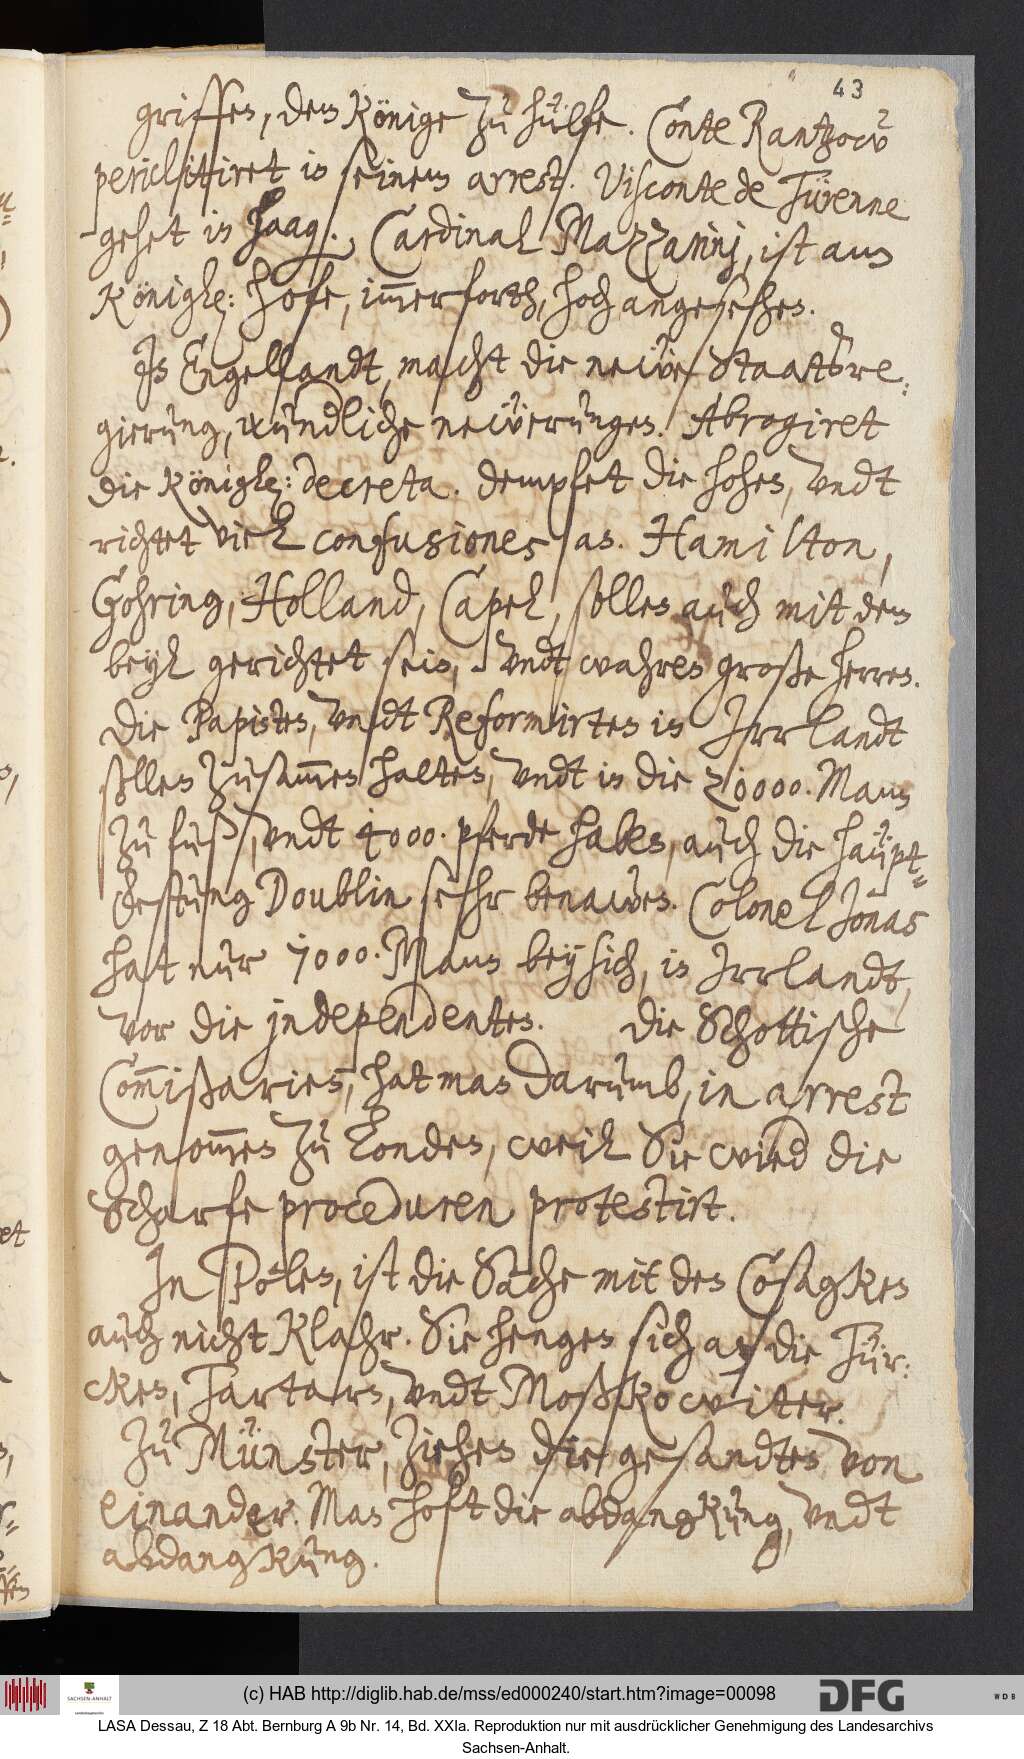 43
griffen, dem Könige zu hülfe. Conte Rantzow
periclitiret in seinem arrest. Visconte de Türenne
gehet in Haag. Cardinal Mazzarinj, ist am
Königl: hofe, im̅erforth, hoch angesehen.
In Engellandt, macht die newe Staatsre,,
gierung, kündliche newerungen. Abrogiret
die Königl: decreta. dempfet die hohen, undt
richtet viel confusiones an. Hamilton,
Gohring, Holland, Capel, sollen auch mit dem
beyl gerichtet sein, undt wahren große herren.
Die Papisten, undt Reformirten in Irrlandt
sollen zusam̅en halten, undt in die 20000. Mann
zu fuß, undt 4000. pferde haben, auch die haupt-
vestung Doublin sehr benawen. Colonel Jonas
hat nur 7000. Mann bey sich, in Irrlandt,
vor die independenten. Die Schottische
Com̅ißarien, hat man darumb, in arrest
genom̅en zu London, weil Sie wied die
Scharfe proceduren protestirt.
In Polen, ist die Sache mit den Cosagken
auch nicht klahr. Sie hengen sich an die Tür,,
cken, Tartarn, undt Moßkowiter.
Zu Münster, ziehen die gesandten von
einander. Man hoft die abdangkung, undt
abdangkung.
(c) HAB http://diglib.hab.de/mss/ed000240/start.htm?image=00098
DFG
WDB
SACHSEN-ANHALT
LASA Dessau, Z 18 Abt. Bernburg A 9b Nr. 14, Bd. XXIa. Reproduktion nur mit ausdrücklicher Genehmigung des Landesarchivs
Sachsen-Anhalt.